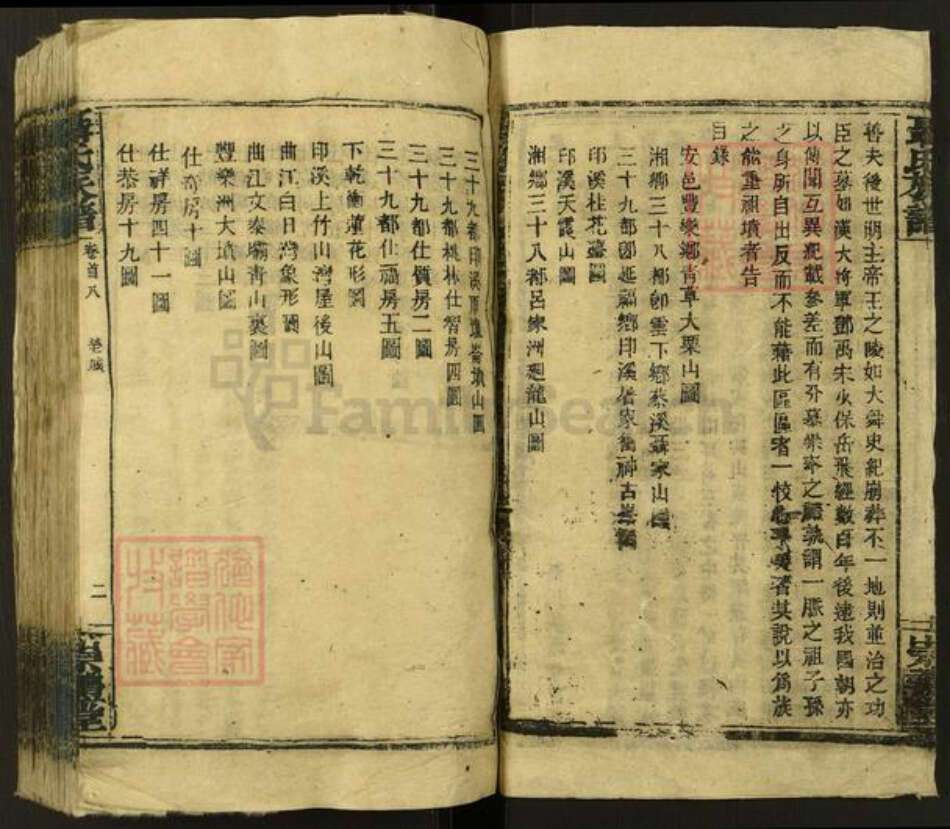 善夫後世明主帝王之陵如大舜史紀崩葬不一地則並治之功
臣之墓如漢大將軍鄧禹宋少保岳飛經數百年後遠我國朝亦
以傳聞互異紀載參差而有分墓崇奉之孰謂一脈之祖子孫
之身所自出反而不能藉此區區者一攷著其說以爲族
之能重祖墳者告
目錄
安邑豐樂鄉青草大栗山圖
湘鄉三十八都卽雲下鄉蔡溪聶家山圖
三十九都卽延福鄉印溪衝古圖
印溪桂花臺圖
印溪天霞山圖
湘鄉三十八都呂家洲迴龍山圖
三十九都印溪山圖
三十九都桃林仕智房四圖
三十九都仕質房二圖
三十九都仕福房五圖
下乾衝蓮花形圖
印溪上竹山灣屋後山圖
曲江白日灣象形圖
曲江文泰壩青山裏圖
豐樂洲大墳山圖
仕奇房十圖
仕祥房四十一圖
仕恭房十九圖
卷首八
二
FamilySearch